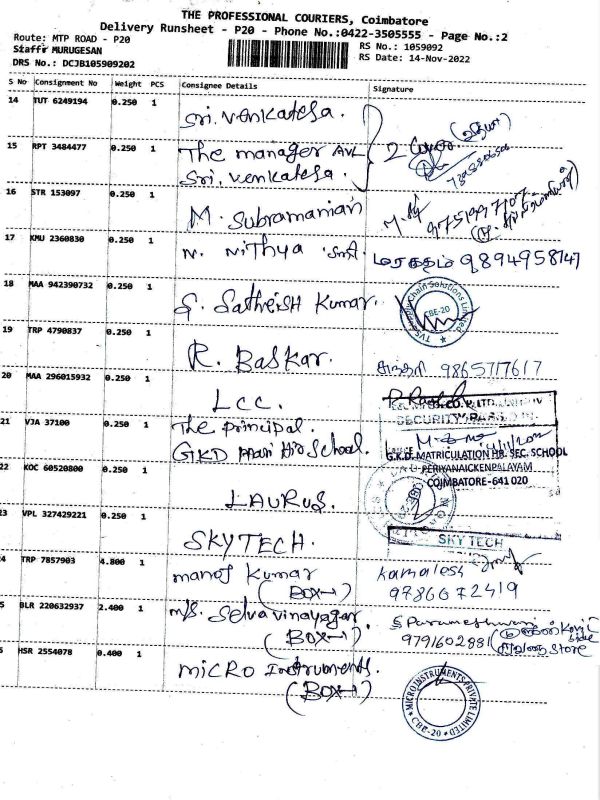 THE PROFESSIONAL COURIERS, Coimbatore
Delivery Runsheet - P20 - Phone No.:0422-3505555 - Page No.:2
Route: MTP ROAD - P20
Staff: MURUGESAN
DRS No.: DCJB105909202
RS No.: 1059092
RS Date: 14-Nov-2022
S No Consignment No Weight PCS Consignee Details Signature
14 TUT 6249194 0.250 1 Sri. Venkatesa.
15 RPT 3484477 0.250 1 The manager AVL
Sri. Venkatesa.
16 STR 153097 0.250 1 M. Subramanian
17 KMU 2360830 0.250 1 N. Nithya மரகதம் 9894958147
18 MAA 942390732 0.250 1 S. Satheish Kumar.
TVS Supply Chain Solutions Limited
CBE-20
19 TRP 4790837 0.250 1 R. Baskar. 9865717617
20 MAA 296015932 0.250 1 LCC.
21 VJA 37100 0.250 1 The principal.
GKD Hr School.
G.K.D. MATRICULATION HR. SEC. SCHOOL
PERIYANAICKENPALAYAM
COIMBATORE-641 020
22 KOC 60520800 0.250 1 LAURUS.
23 VPL 327429221 0.250 1 SKYTECH. SKY TECH
4 TRP 7857903 4.800 1 manoj Kumar Kamalesh
(BOX-1) 9786672419
5 BLR 220632937 2.400 1 m/s. Selvavinayagar. S Parameshwari
(BOX-1) 9791602881
Store
HSR 2554078 0.400 1 Micro Instruments.
(BOX-1)
MICRO INSTRUMENTS PRIVATE LIMITED
CBE-20